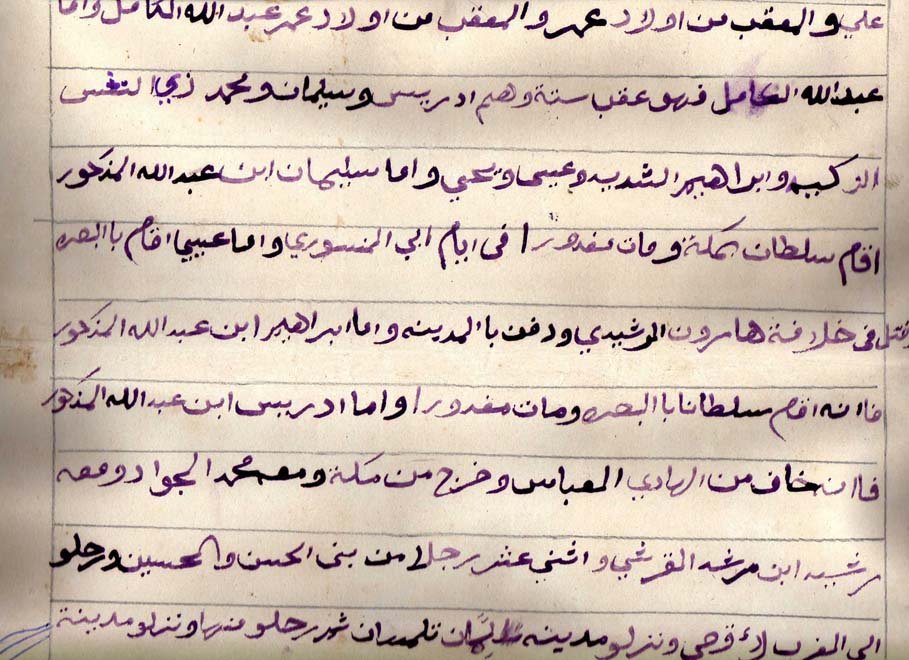 علي والمعقب من اولاد عمر والمعقب من اولاد عمر عبد الله الكامل واما
عبد الله الكامل فهو عقب ستة وهم ادريس وسليمان ومحمد زي النفس
الزكيه وابراهيم الشديد وعيسى ويحيي واما سليمان ابن عبد الله المذكور
اقام سلطان بمكة ومات مغدورا في ايام ابي المنسوري واما عيسي اقام باالبصره
وقتل في خلافة هارون الرشيدي ودفن باالمدينه واما ابراهيم ابن عبد الله المذكور
فاانه اقام سلطانا باالبصره ومات مغدورا واما ادريس ابن عبد الله المذكور
فاانه خاف من الهادي العباس وخرج من مكة ومعه محمد الجواد ومعه
رشيد ابن مرشد القرشي واثني عشر رجلا من بنى الحسن والحسين ورحلو
الى المغرب ونزلو مدينه تلمسان ثم رحلو منها ونزلو مدينة